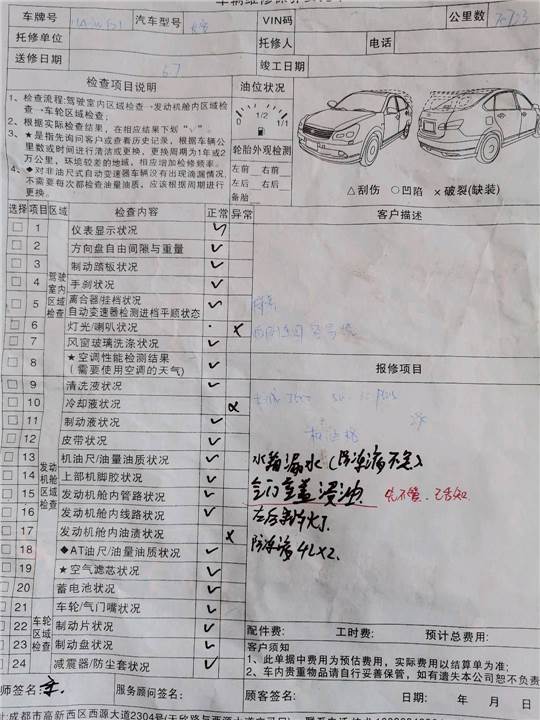 车牌号 汽车型号 VIN码 公里数
托修单位 托修人 电话
送修日期 竣工日期
检查项目说明 油位状况
1、检查流程:驾驶室内区域检查→发动机舱内区域检
查→车轮区域检查;
2、根据实际检查结果,在相应结果下划“√”。
3、★是指先询问客户或查看历史记录,根据车辆公
里数或时间进行清洁或更换,更换周期为1年或2
万公里,环境较差的地域,相应增加检修频率。
4、◆对非油尺式自动变速器车辆没有出现滴漏情况,
不需要每次都检查油量油质,应该根据周期进行
更换。
0 1/2 1/1
轮胎外观检测
左前 右前
左后 右后
备胎
△刮伤 ○凹陷 ×破裂(缺装)
选择 项目 区域 检查内容 正常 异常 客户描述
驾驶室内区域检查
1 仪表显示状况 √
2 方向盘自由间隙与重量 √
3 制动踏板状况 √
4 手刹状况 √
5 离合器/挂档状况
自动变速器检测进档平顺状态 √
6 灯光/喇叭状况 ×
7 风窗玻璃洗涤状况 √
8 ★空调性能检测结果
(需要使用空调的天气) √
报修项目
发动机舱区域检查
9 清洗液状况 √
10 冷却液状况 ×
11 制动液状况 √
12 皮带状况 √
13 机油尺/油量油质状况 √
14 上部机脚胶状况 √
15 发动机舱内管路状况 √
16 发动机舱内线路状况 √
17 发动机舱内油渍状况 ×
18 ◆AT油尺/油量油质状况 √
19 ★空气滤芯状况 √
20 蓄电池状况 √
水箱漏水(防冻液不足)
气门室盖浸油 先不管、已告知
防冻液4L×2
车轮区域检查
21 车轮/气门嘴状况 √
22 制动片状况 √
23 制动盘状况 √
24 减震器/防尘套状况 √
配件费: 工时费: 预计总费用:
客户须知
1、此单据中费用为预估费用,实际费用以结算单为准;
2、车内贵重物品请自行妥善保管,如有遗失本公司恕不负责
师签名: 服务顾问签名: 顾客签名: 日期: 年 月 日
成都市高新西区西源大道2304号